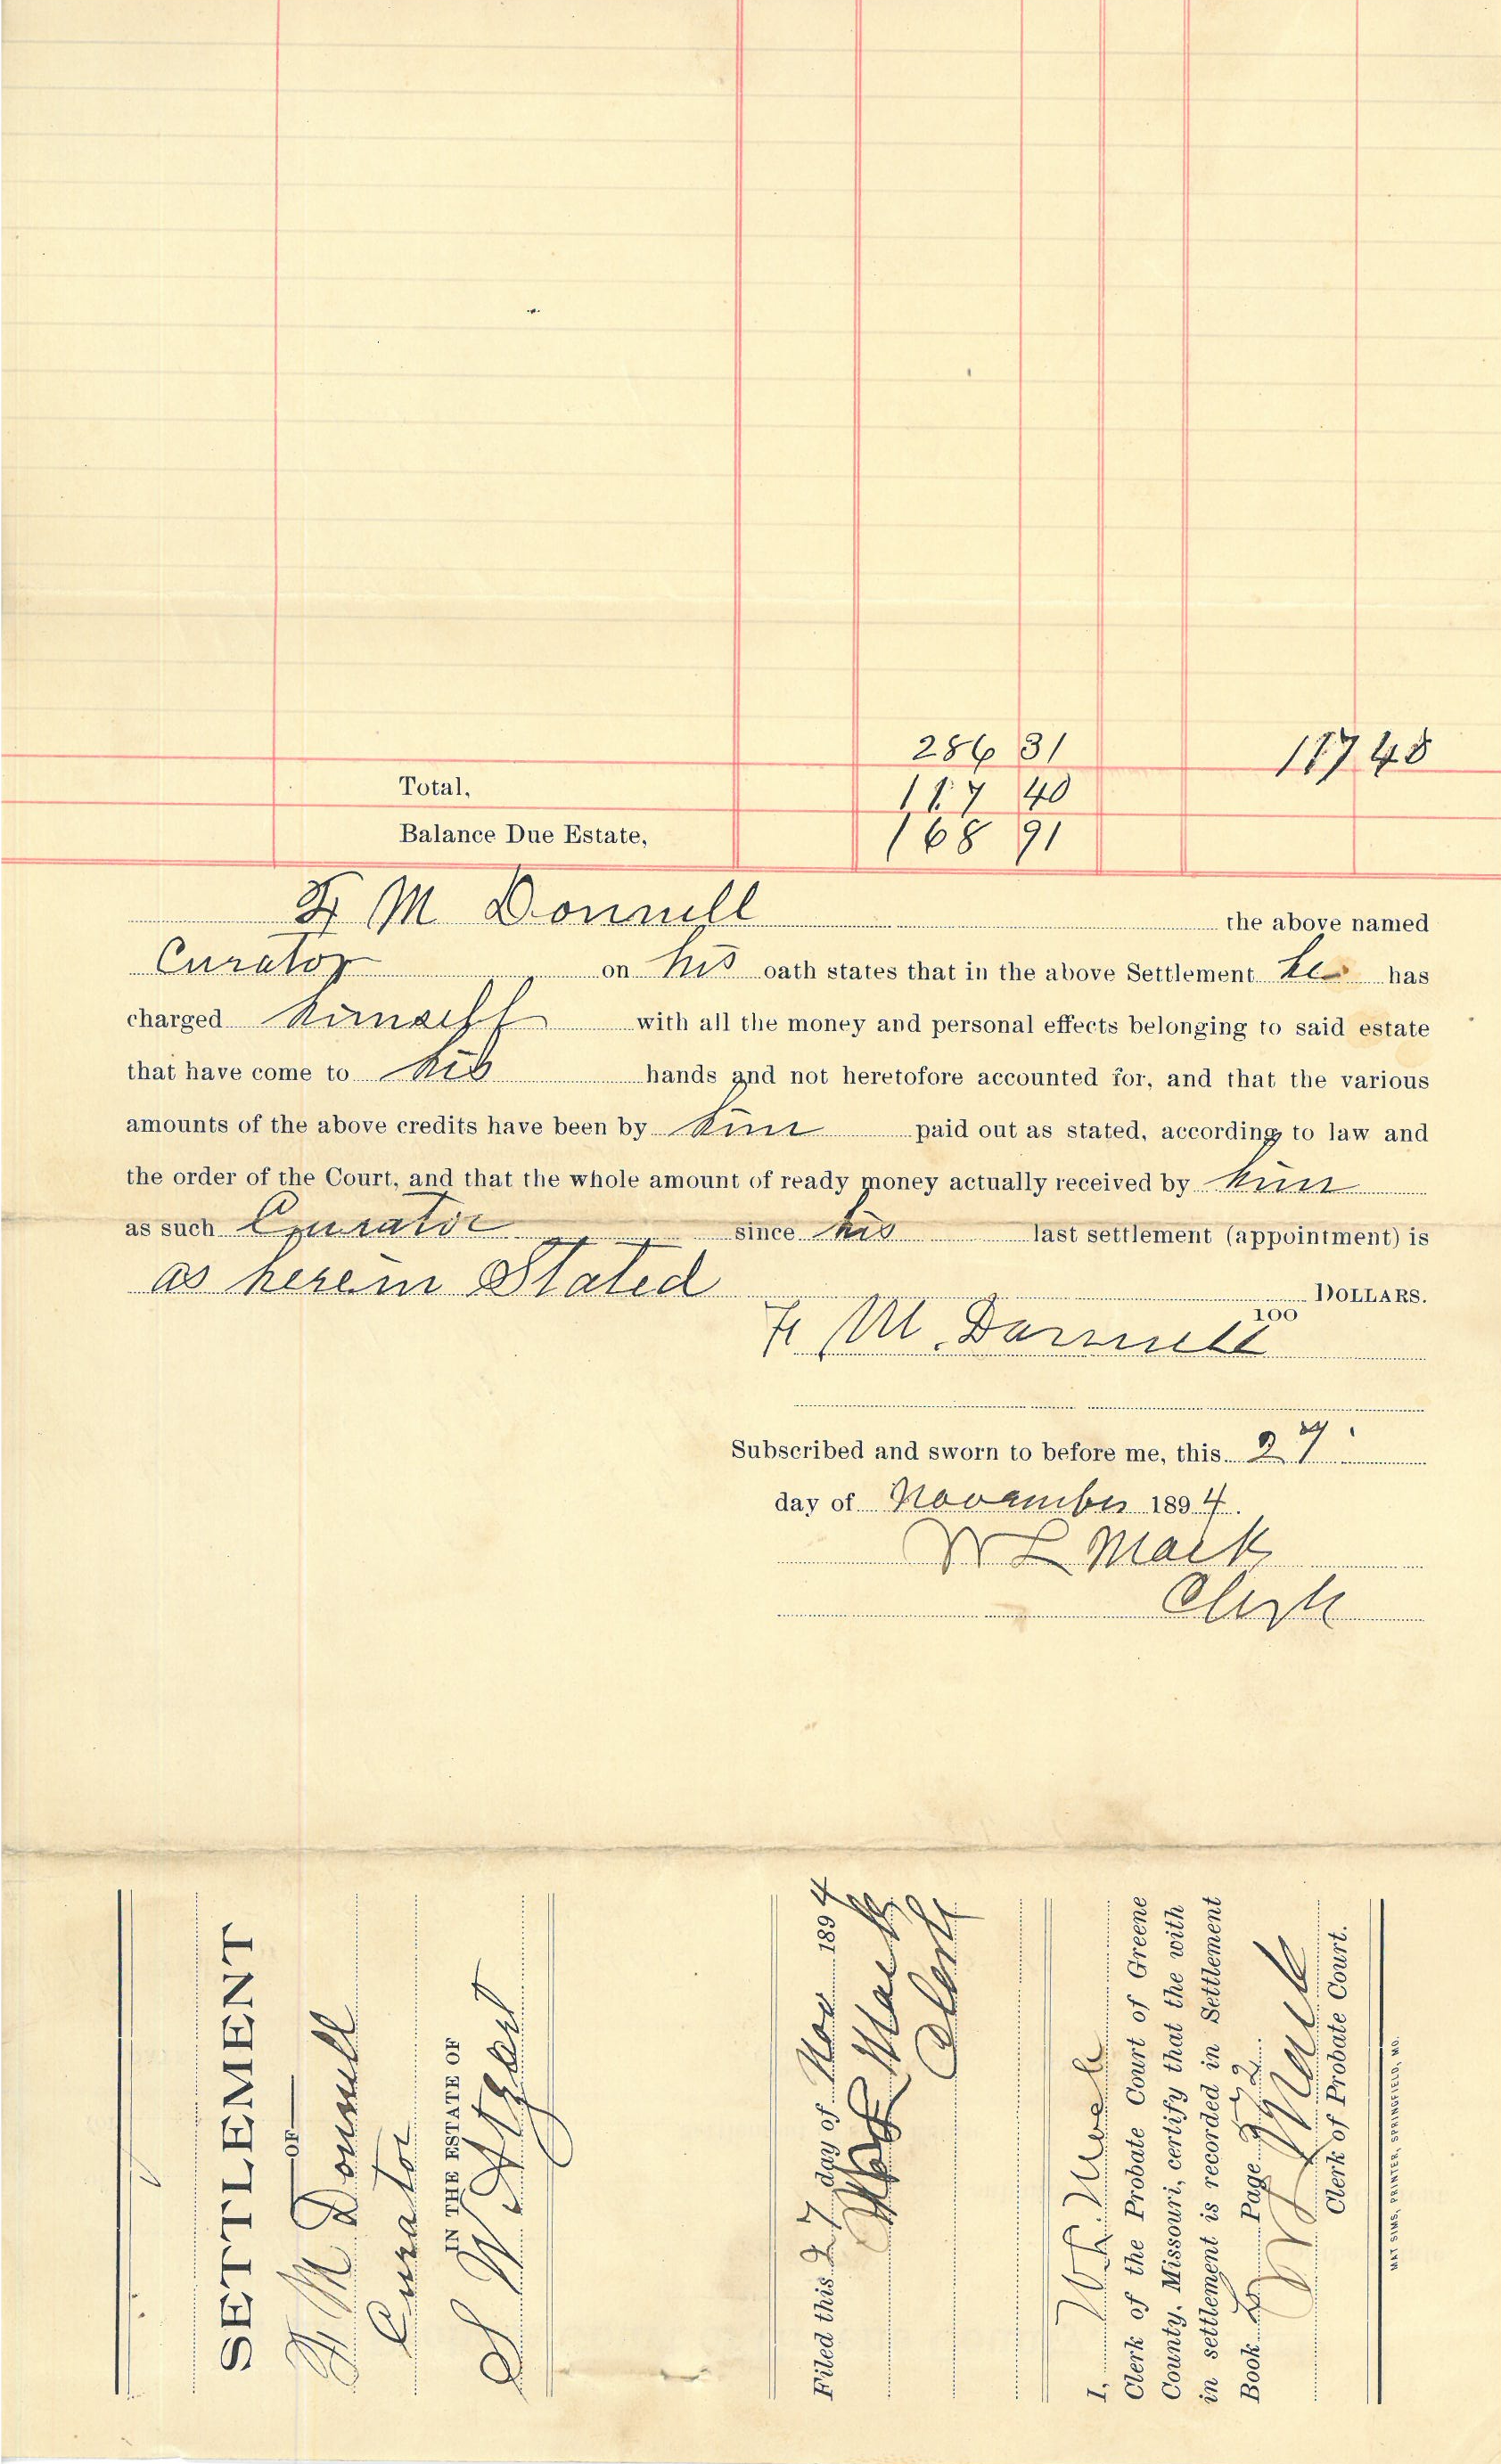 286 31 117 48
Total, 117 40
Balance Due Estate, 168 91
F M Donnell the above named
Curator on his oath states that in the above Settlement he has
charged himself with all the money and personal effects belonging to said estate
that have come to his hands and not heretofore accounted for, and that the various
amounts of the above credits have been by him paid out as stated, according to law and
the order of the Court, and that the whole amount of ready money actually received by him
as such Curator since his last settlement (appointment) is
as herein Stated DOLLARS.
100
F. M. Donnell
Subscribed and sworn to before me, this 27
day of November 1894.
W L Mack
Clerk
SETTLEMENT
OF
F M Donnell
Curator
IN THE ESTATE OF
S W
Filed this 27 day of Nov 1894
Mack
Clerk
I, W. L. Mack
Clerk of the Probate Court of Greene
County, Missouri, certify that the with
in settlement is recorded in Settlement
Book Page 372
Mack
Clerk of Probate Court.
MAT SIMS, PRINTER, SPRINGFIELD, MO.